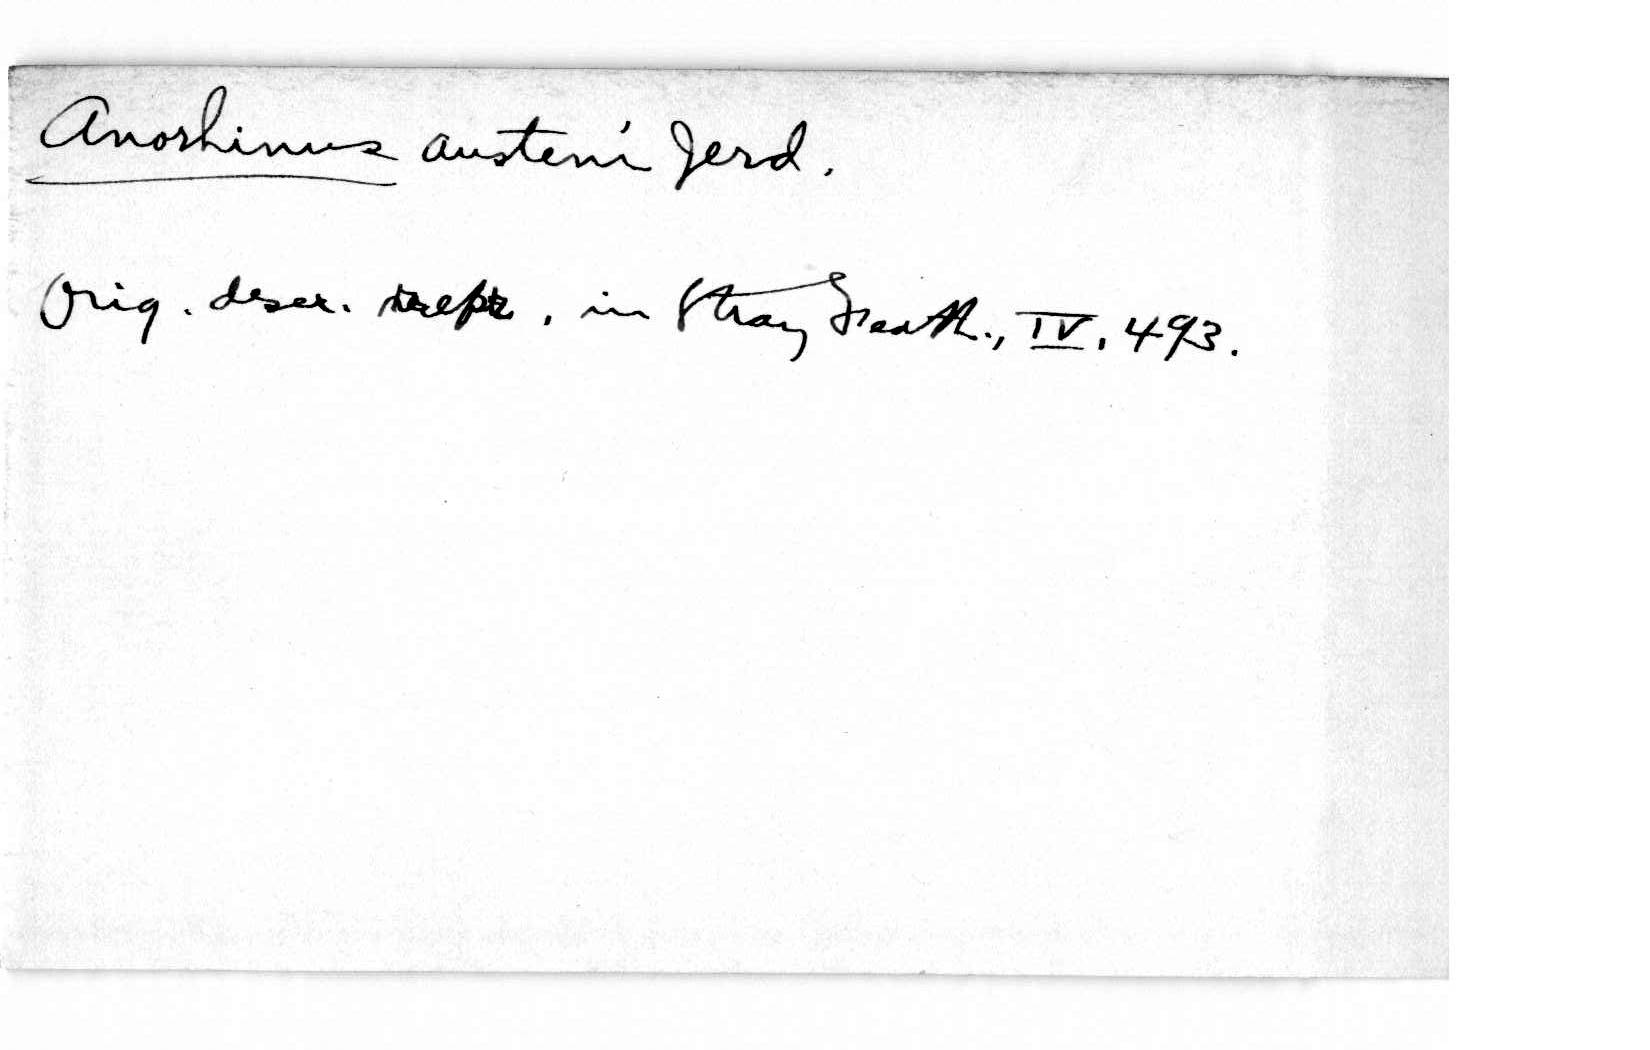 Anorhinus austeni Jerd.
Orig. descr. rept., in Stray Feath., IV, 493.